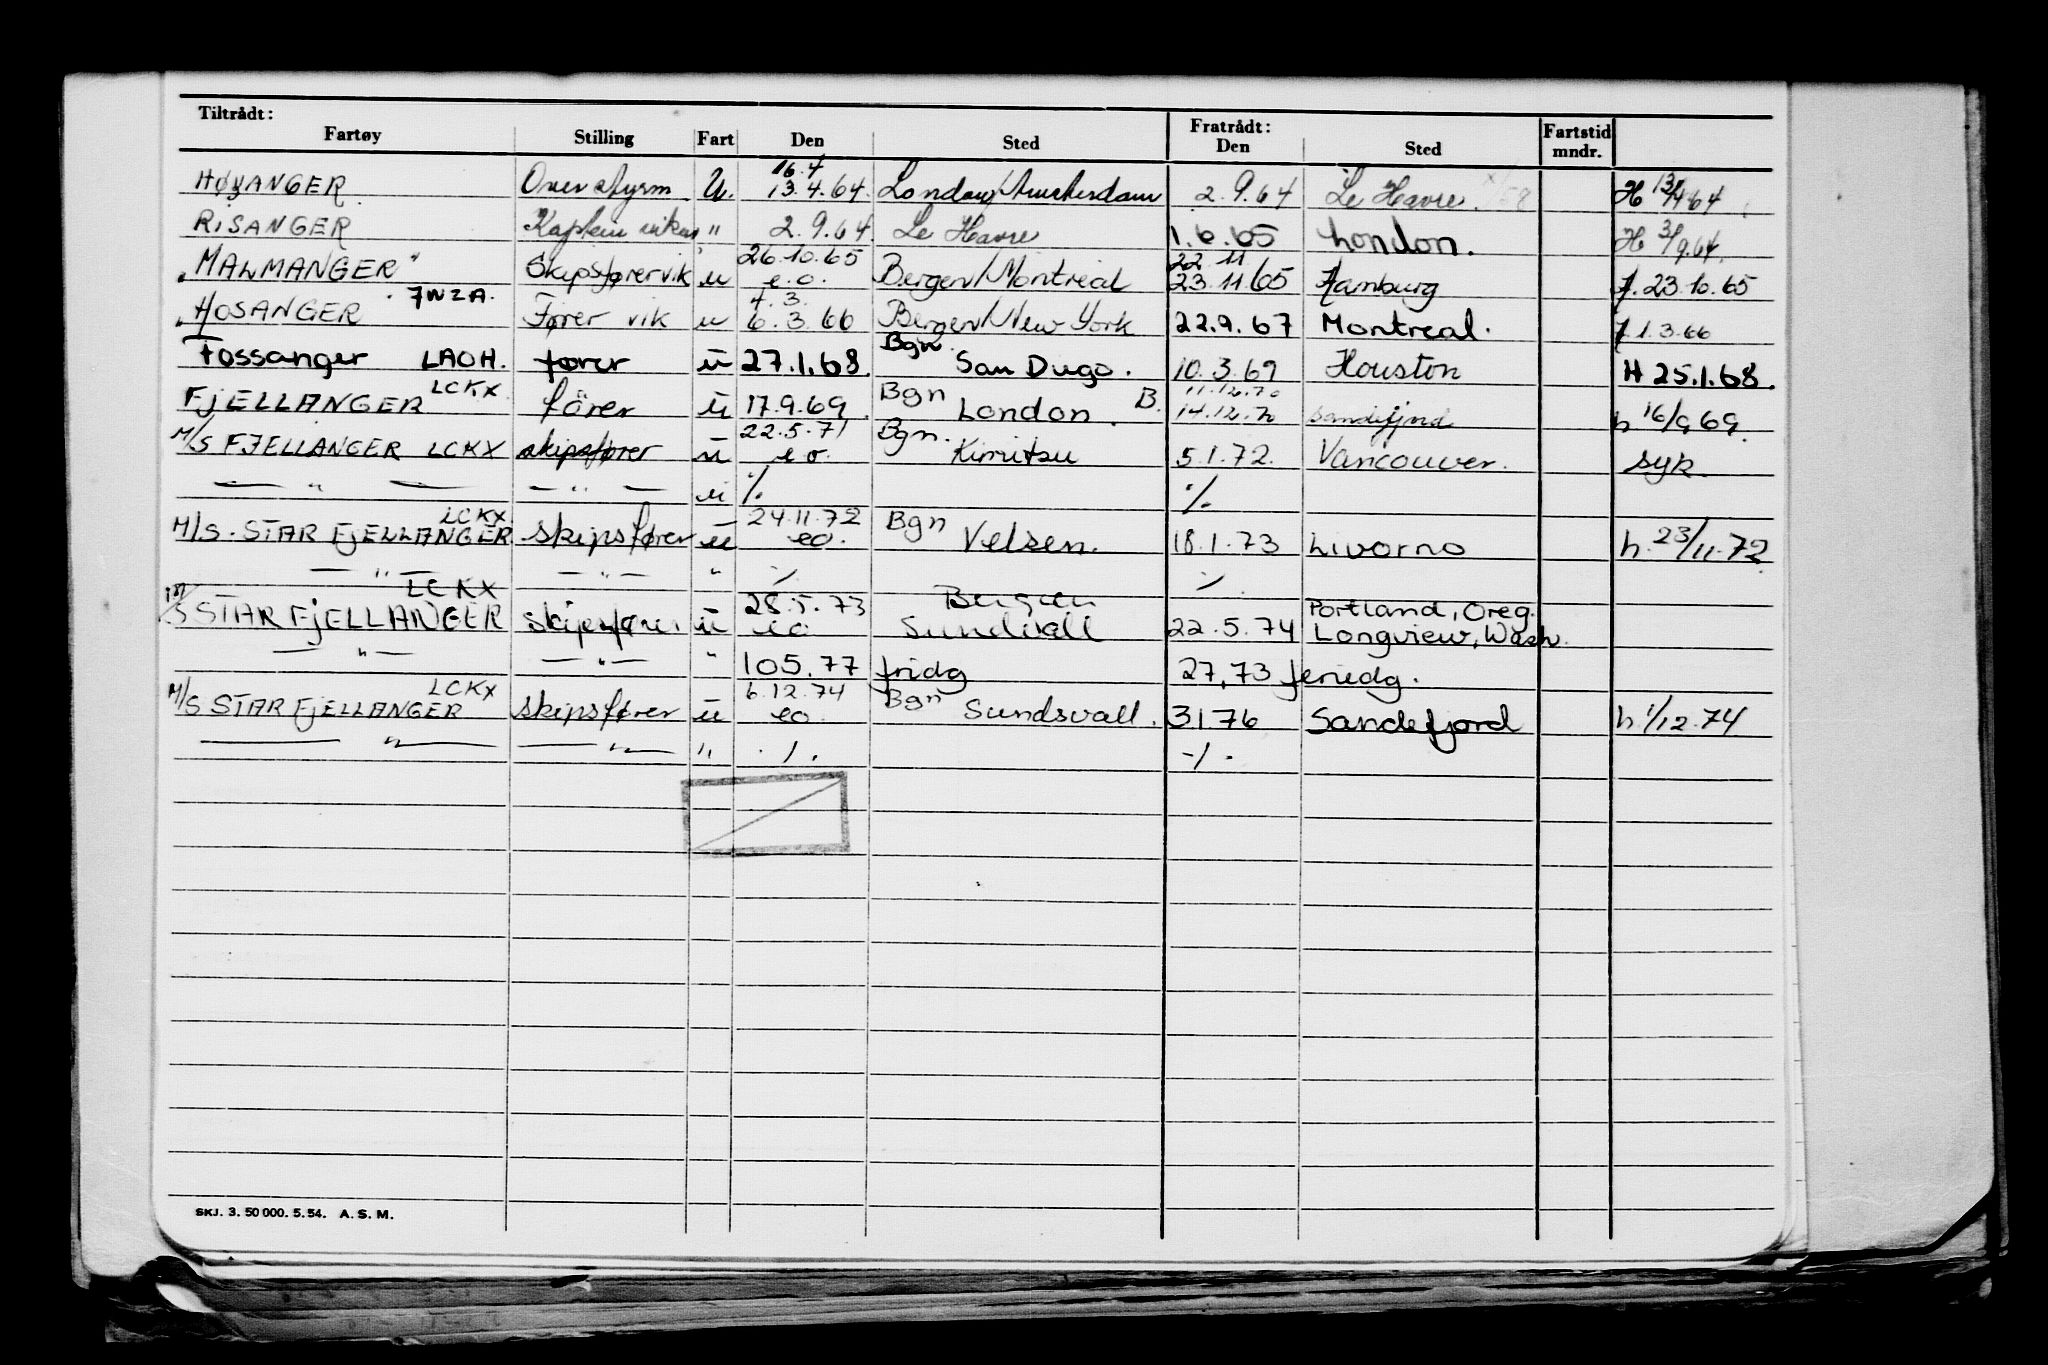 Tiltrådt: Fratrådt:
Fartøy Stilling Fart Den Sted Den Sted Fartstid mndr.
16.4
HØYANGER Overstyrm U. 13.4.64. London/Amsterdam 2.9.64 Le Havre. H 13/4 64
RISANGER Kaptein vikar " 2.9.64. Le Havre 1.6.65 London. H 3/9.64
26.10.65 22 11
"MALMANGER" Skipsfører vik u e.o. Bergen/Montreal 23.11.65 Hamburg f. 23.10.65
7WZA. 4.3.
"HOSANGER Fører vik u 6.3.66 Bergen/New York 22.9.67 Montreal. f 1.3.66
Bgn.
Fossanger LAOH. fører u 27.1.68. San Diego. 10.3.69 Houston H 25.1.68.
LCKX Bgn 11.12.70
FJELLANGER fører u 17.9.69. London. B. 14.12.70 Sandefjord h 16/9 69.
22.5.71 Bgn.
M/S FJELLANGER LCKX skipsfører u eo. Kimitsu 5.1.72. Vancouver. syk
— " — — " — u ./. ./.
LCKX 24.11.72 Bgn
M/S. STAR FJELLANGER skipsfører u eo. Velsen. 18.1.73 Livorno h. 23/11.72
— " — — " — " ./. ./.
LCKX 28.5.73 Bergen Portland, Oreg.
M/S STAR FJELLANGER skipsfører u eo Sundsvall 22.5.74 Longview, Wash.
— " — — " — " 105.77 fridg 27,73 feriedg.
LCKX 6.12.74 Bgn
M/S STAR FJELLANGER skipsfører u eo. Sundsvall. 3176 Sandefjord h 1/12.74
— " — — " — " ./. ./.
SKJ. 3. 50 000. 5. 54. A. S. M.